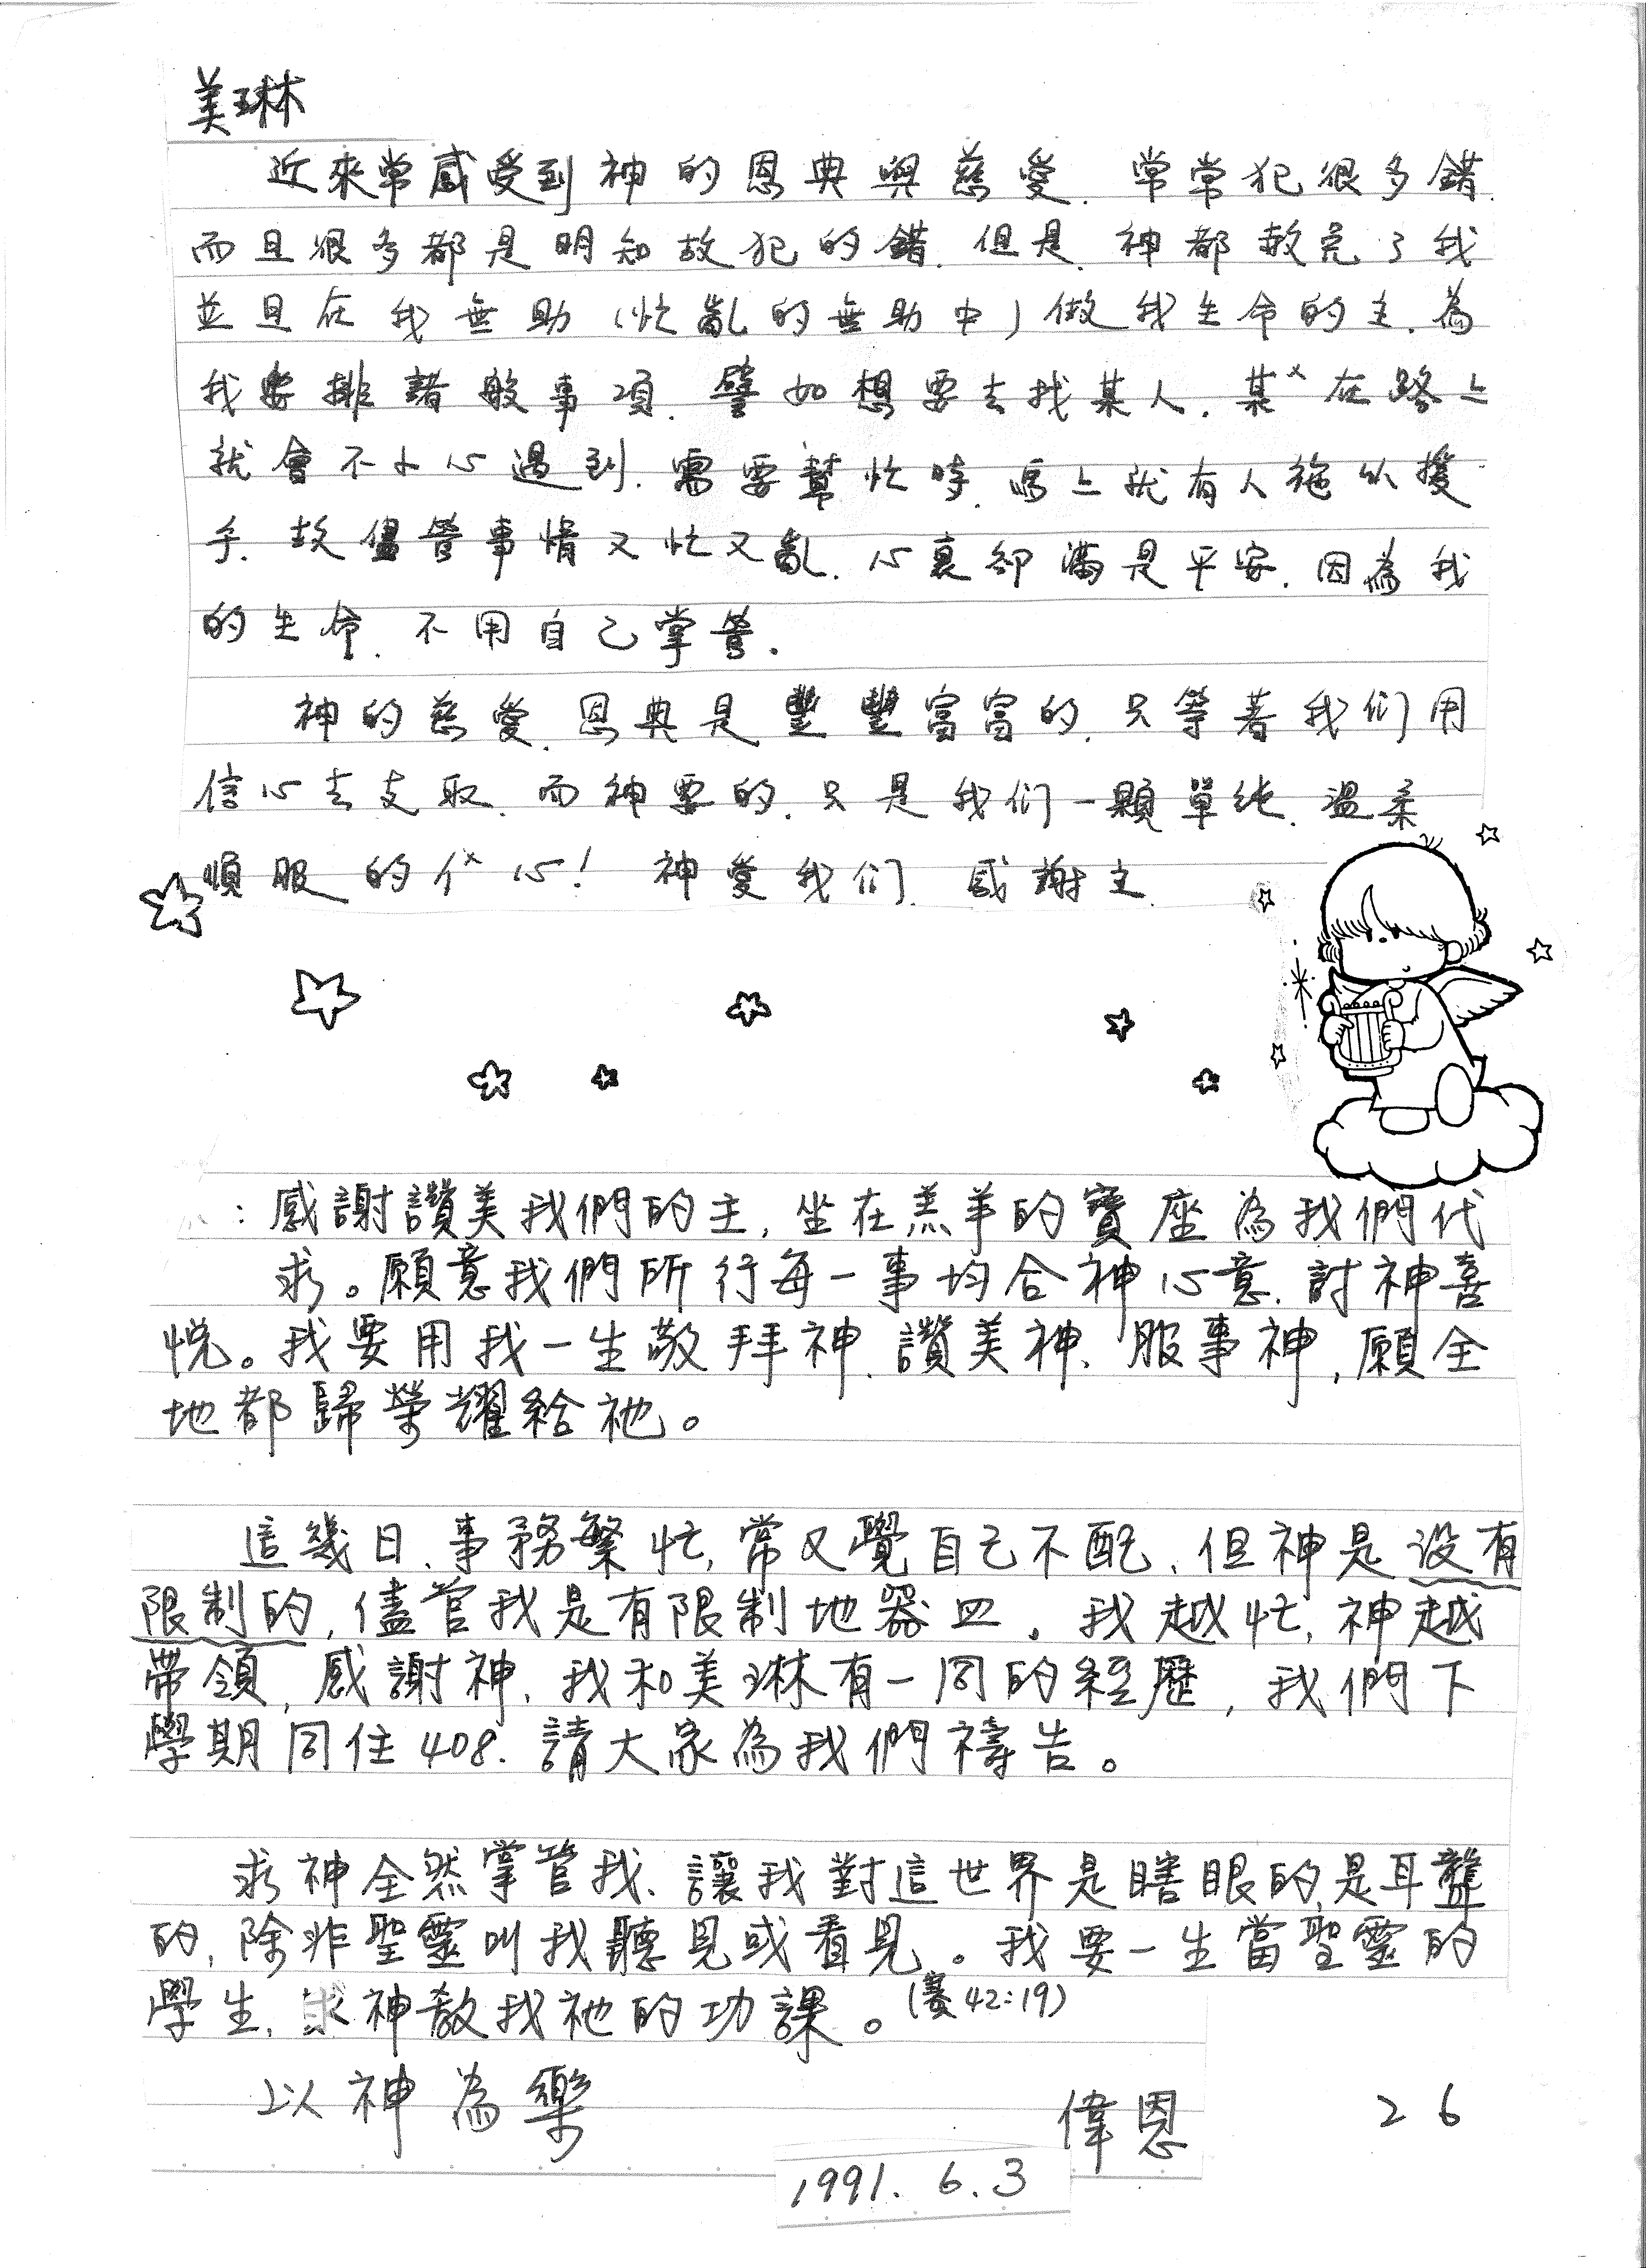 美琳
近來常感受到神的恩典與慈愛.常常犯很多錯.
而且很多都是明知故犯的錯.但是.神都赦免了我
並且在我無助(忙亂的無助中)做我生命的主.為
我安排諸般事項.譬如想要去找某人.某人在路上
就會不小心遇到.需要幫忙時.馬上就有人施以援
手.故儘管事情又忙又亂.心裏卻滿是平安.因為我
的生命.不用自己掌管.
神的慈愛.恩典是豐豐富富的.只等著我们用
信心去支取.而神要的.只是我们一顆單純.溫柔
順服的心!神愛我们.感謝主.
:感謝讚美我們的主,坐在羔羊的寶座為我們代
求。願意我們所行每一事均合神心意.討神喜
悅。我要用我一生敬拜神.讚美神、服事神,願全
地都歸榮耀給祂。
這幾日、事務繁忙,常又覺自己不配、但神是沒有
限制的,儘管我是有限制地器皿.我越忙,神越
帶領,感謝神、我和美琳有一同的經歷,我們下
學期同住408.請大家為我們禱告。
求神全然掌管我、讓我對這世界是瞎眼的.是耳聾
的,除非聖靈叫我聽見或看見。我要一生當聖靈的
學生、求神教我祂的功課。(賽42:19)
以神為樂
偉恩
26
1991.6.3